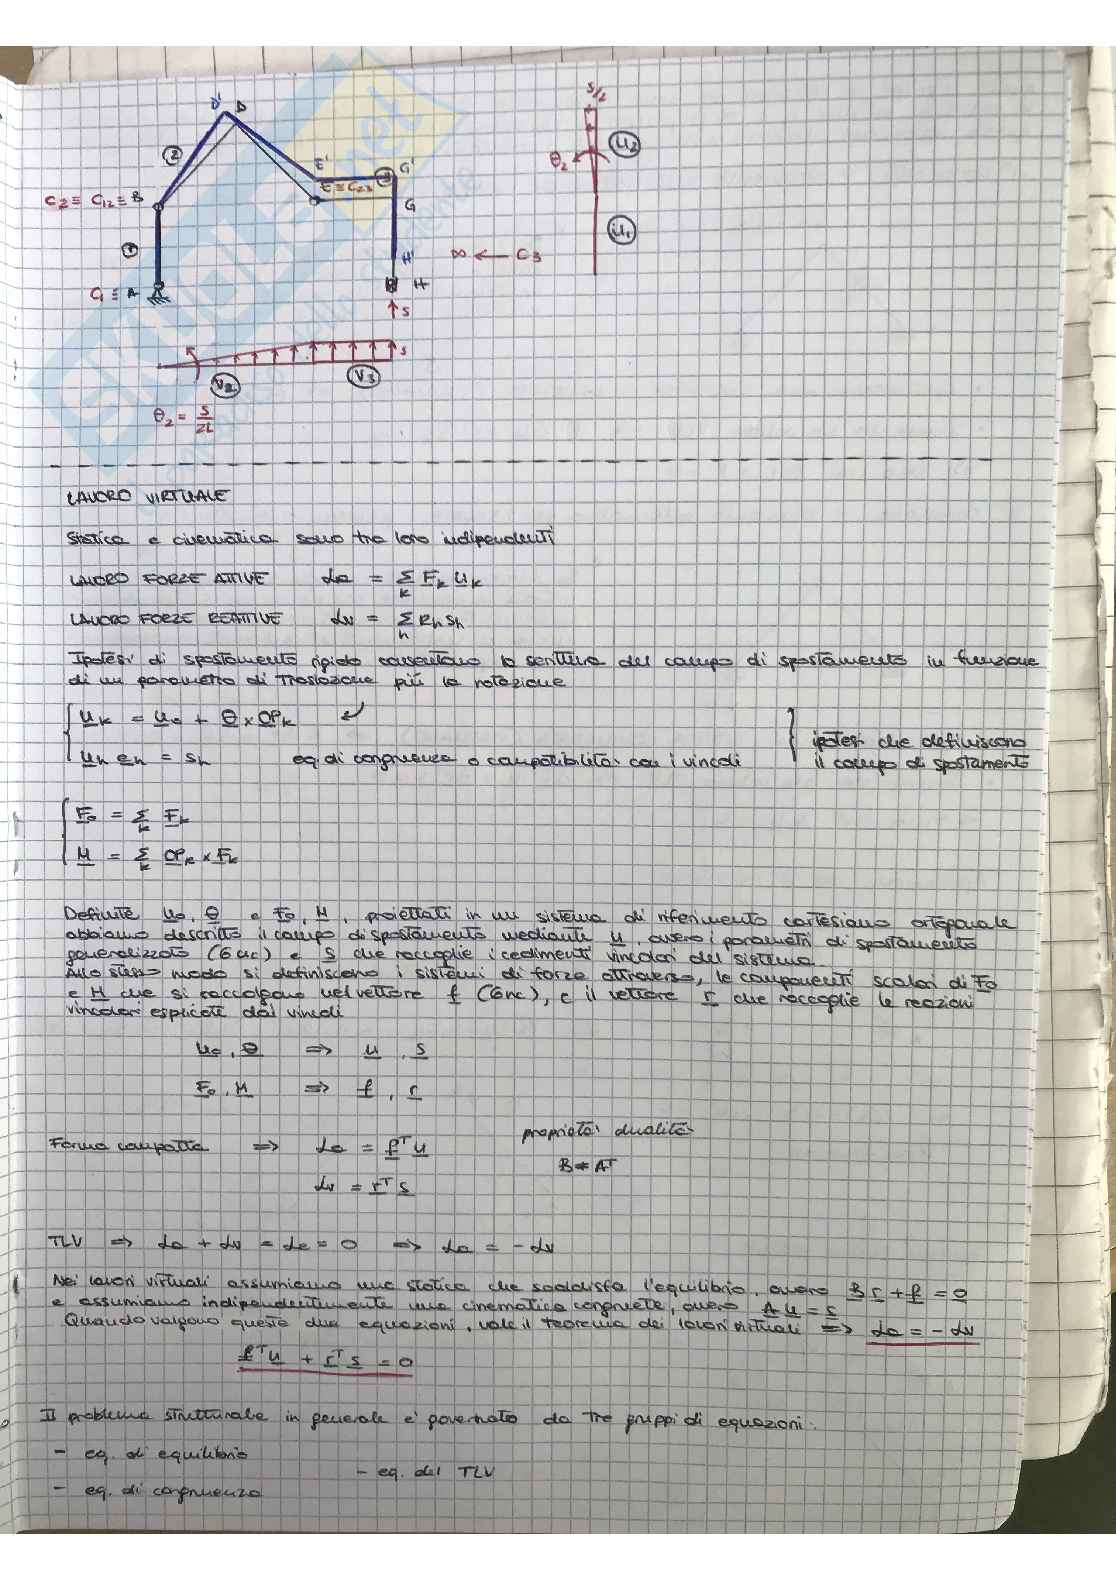 D' D
S/2
②
E'
③ G'
θ2
U2
C2 ≡ C12 ≡ B
E ≡ C23
G
①
U1
H'
∞ ← C3
C1 ≡ A
H
S
S
V2
V3
θ2 = S/2L
LAVORO VIRTUALE
Statica e cinematica sono tra loro indipendenti
LAVORO FORZE ATTIVE La = Σk Fk uk
LAVORO FORZE REATTIVE Lv = Σh Rh sh
Ipotesi di spostamento rigido consentono la scrittura del campo di spostamento in funzione
di un parametro di traslazione più la rotazione
uk = uo + θ × OPk
uh eh = sh eq. di congruenza o compatibilità con i vincoli
ipotesi che definiscono
il campo di spostamento
Fo = Σk Fk
M = Σk OPk × Fk
Definite uo, θ e Fo, M, proiettati in un sistema di riferimento cartesiano ortogonale
abbiamo descritto il campo di spostamento mediante u, ovvero i parametri di spostamento
generalizzato (6nc) e s che raccoglie i cedimenti vincolari del sistema.
Allo stesso modo si definiscono i sistemi di forze attraverso, le componenti scalari di Fo
e M che si raccolgono nel vettore f (6nc), e il vettore r che raccoglie le reazioni
vincolari esplicate dai vincoli
uo, θ ⇒ u, s
Fo, M ⇒ f, r
Forma compatta ⇒ La = fT u
proprietà dualità
B = AT
Lv = rT s
TLV ⇒ La + Lv = Le = 0 ⇒ La = - Lv
Nei lavori virtuali assumiamo una statica che soddisfa l'equilibrio, ovvero B r + f = 0
e assumiamo indipendentemente una cinematica congruente, ovvero A u = s
Quando valgono queste due equazioni, vale il teorema dei lavori virtuali ⇒ La = - Lv
fT u + rT s = 0
Il problema strutturale in generale e' governato da tre gruppi di equazioni:
- eq. di equilibrio
- eq. del TLV
- eq. di congruenza